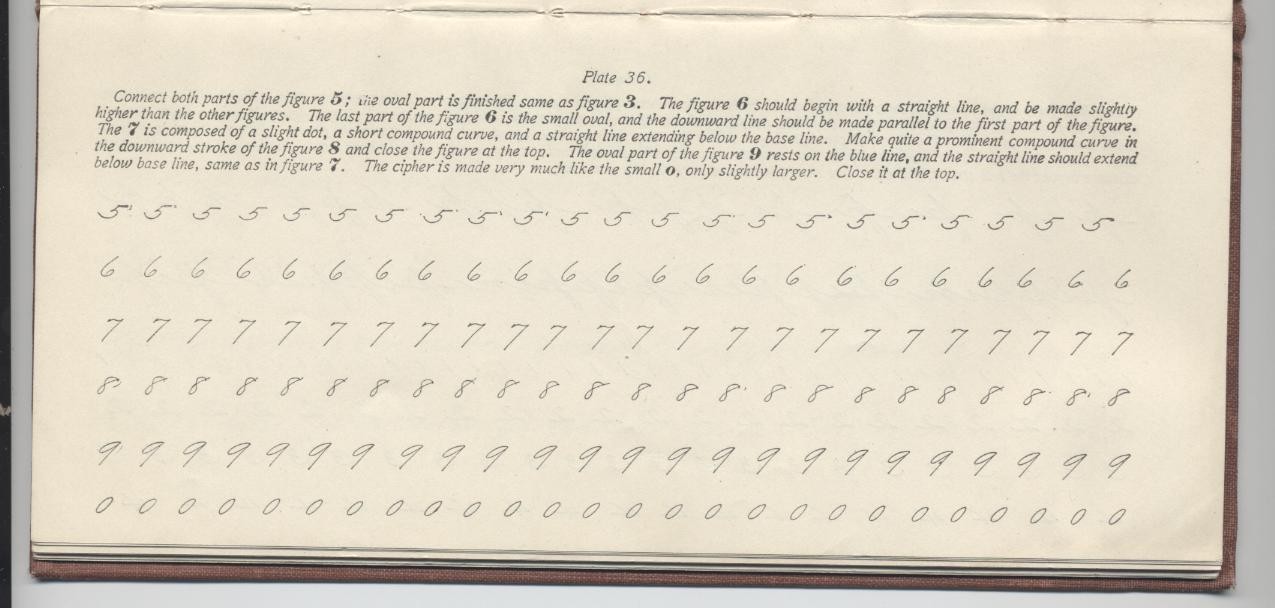 Plate 36.
Connect both parts of the figure 5; the oval part is finished same as figure 3. The figure 6 should begin with a straight line, and be made slightly
higher than the other figures. The last part of the figure 6 is the small oval, and the downward line should be made parallel to the first part of the figure.
The 7 is composed of a slight dot, a short compound curve, and a straight line extending below the base line. Make quite a prominent compound curve in
the downward stroke of the figure 8 and close the figure at the top. The oval part of the figure 9 rests on the blue line, and the straight line should extend
below base line, same as in figure 7. The cipher is made very much like the small o, only slightly larger. Close it at the top.
5 5 5 5 5 5 5 5 5 5 5 5 5 5 5 5 5 5 5 5 5 5
6 6 6 6 6 6 6 6 6 6 6 6 6 6 6 6 6 6 6 6 6 6 6
7 7 7 7 7 7 7 7 7 7 7 7 7 7 7 7 7 7 7 7 7 7 7 7
8 8 8 8 8 8 8 8 8 8 8 8 8 8 8 8 8 8 8 8 8 8 8 8
9 9 9 9 9 9 9 9 9 9 9 9 9 9 9 9 9 9 9 9 9 9 9 9
0 0 0 0 0 0 0 0 0 0 0 0 0 0 0 0 0 0 0 0 0 0 0 0 0 0